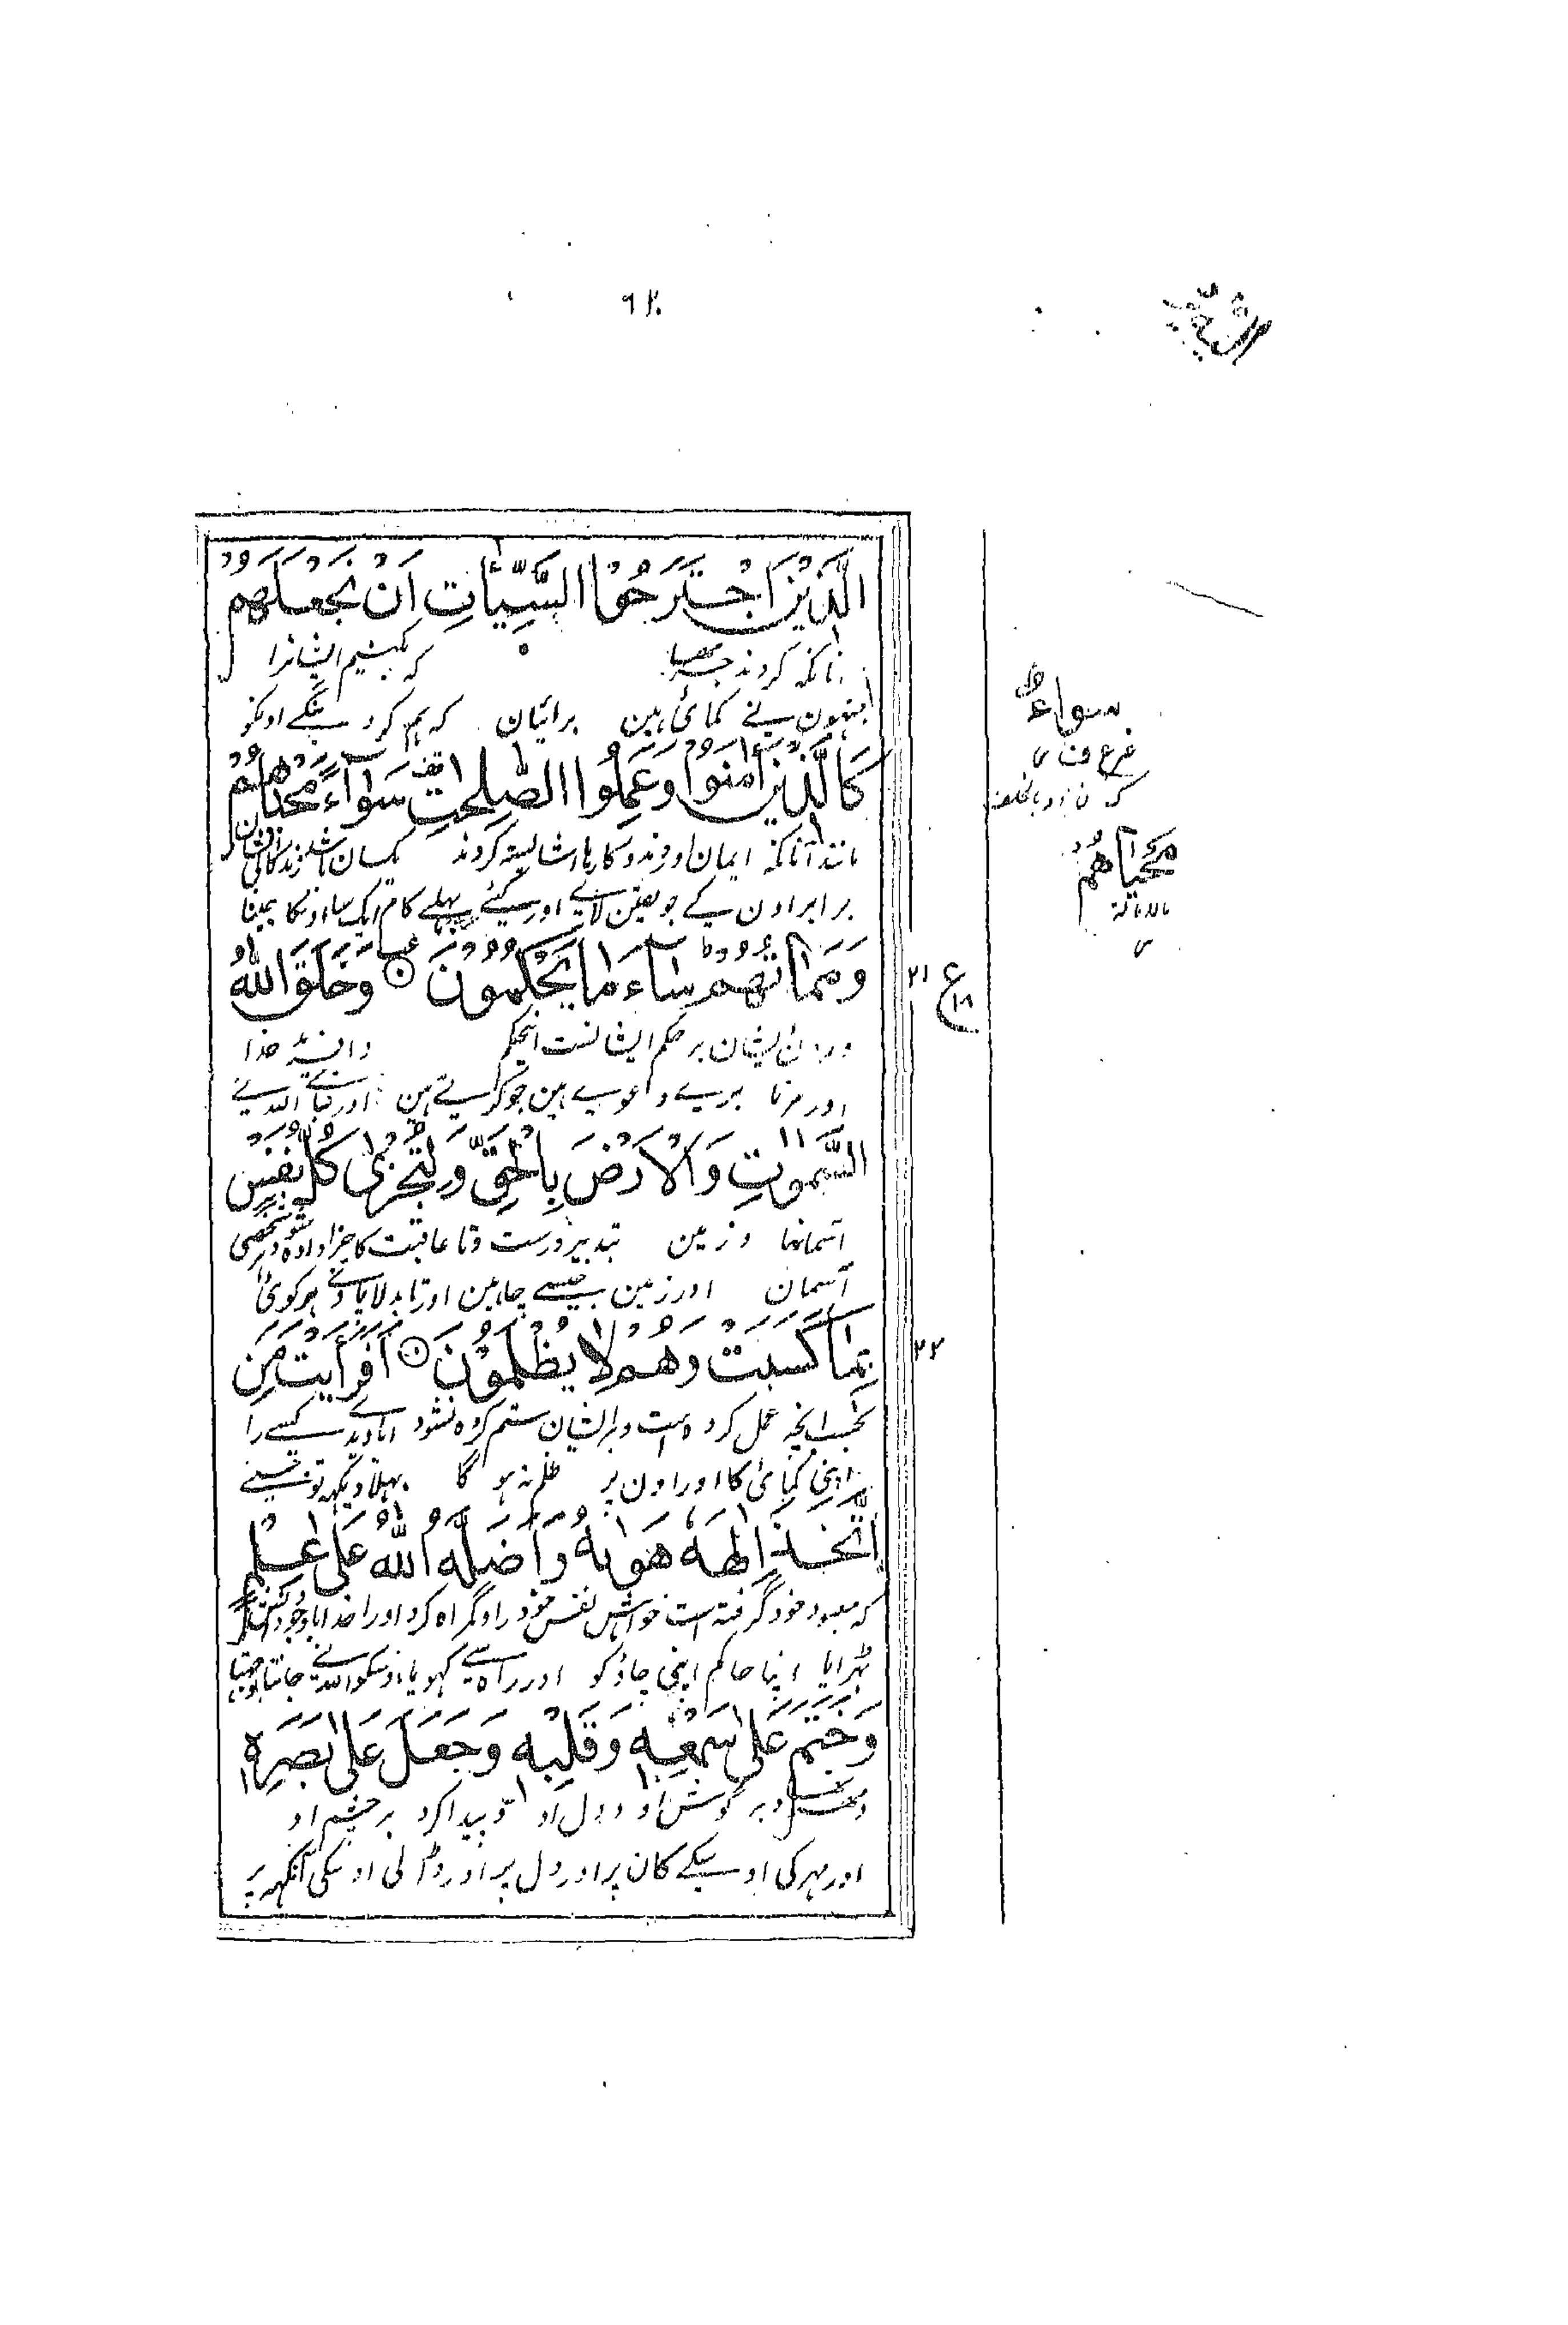 الَّذِيْنَ اجْتَرَحُوْا السَّيِّاٰتِ اَنْ نَجْعَلَهُمْ
کردند که بکنیم ایشانرا
جنہون نے کمائی ہین برائیان کہ ہم کر دینگے اونکو
كَالَّذِيْنَ اٰمَنُوْا وَعَمِلُوا الصّٰلِحٰتِ سَوَآءً مَّحْيَاهُمْ
مانند آنانکه ایمان اوردند و کارهای شایسته کردند یکسان باشد زندگانی ایشان
برابر اون کے جو یقین لائے اور کیئے بہلے کام ایک سا اونکا جینا
وَمَمَاتُهُمْ سَآءَ مَا يَحْكُمُوْنَ وَخَلَقَ اللّٰهُ
۲۱
ع
و مردن ایشان بد حکم ایشانست اینحکم وافرید خدا
اور مرنا برے دعوے ہین جو کرتے ہین اور بنائے اللہ نے
السَّمٰوٰتِ وَالْاَرْضَ بِالْحَقِّ وَلِتُجْزٰى كُلُّ نَفْسٍ
آسمانها و زمین بتدبیر درست و تا عاقبت کار جزا داده شود هر شخصی
آسمان اور زمین جیسے چاہین اور تا بدلا پاوے ہر کوئی
بِمَا كَسَبَتْ وَهُمْ لَا يُظْلَمُوْنَ اَفَرَاَيْتَ مَنِ
۲۲
بحسب انچه عمل کرده است و بر ایشان ستم کرده نشود ایا دیدے کسے را
اپنی کمائی کا اور اون پر ظلم نہ ہو گا بہلا دیکہہ تو جسنے
اتَّخَذَ اِلٰهَهٗ هَوٰىهُ وَاَضَلَّهُ اللّٰهُ عَلٰى عِلْمٍ
که معبود خود گرفته است خواهش نفس خود را و گمراه کرد اورا خدا باوجود
ٹہرایا اپنا حاکم اپنی چاؤ کو اور راہ سے کہویا اوسکو اللہ نے جانتا بوجہتا
وَّخَتَمَ عَلٰى سَمْعِهٖ وَقَلْبِهٖ وَجَعَلَ عَلٰى بَصَرِهٖ
بر گوش او و دل او و پیدا کرد بر چشم او
اور مہر کی اوسکے کان پر اور دل پر اور ڈالی اوسکی آنکہہ پر
سواءٌ
مَحْيَاهُمْ